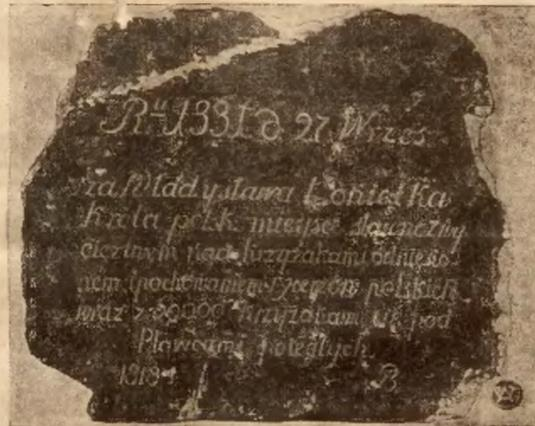 Rᵘ 1331 d 27 Wrześ
za Władysława Łonietka
króla polsk. miejsce sławne zwy
cięztwym nad krzyżakami odniesio
nem i pochowaniem rycerzów polskich
wraz z 60000 krzyżakami pod
Płowcami poległych
1818 r B